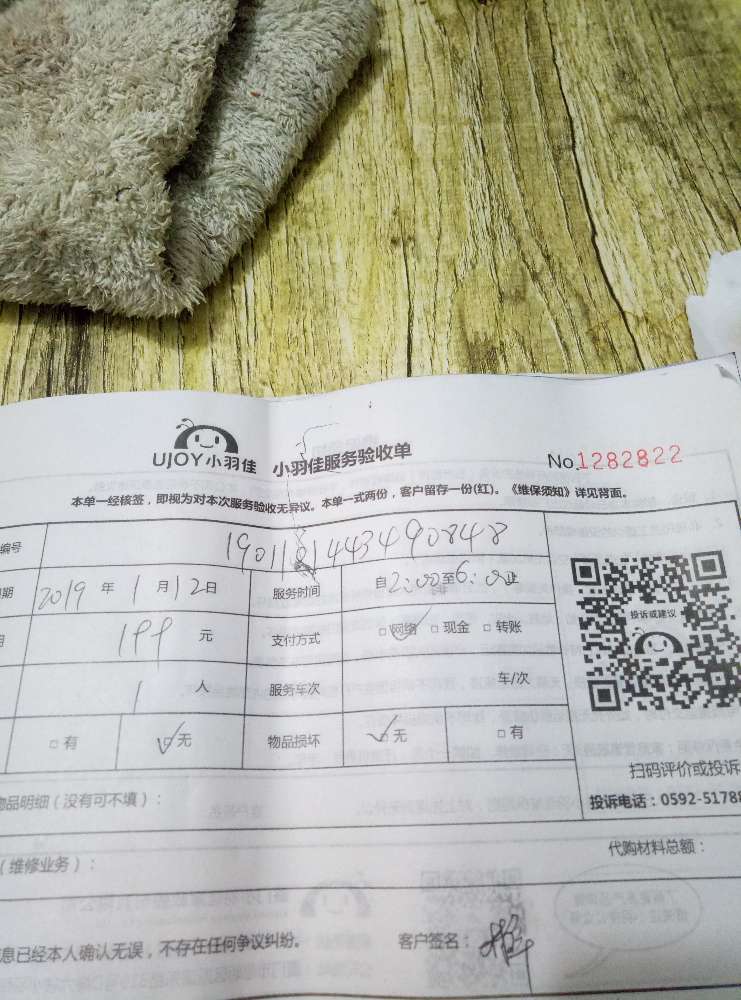 UJOY小羽佳 小羽佳服务验收单 No.1282822
本单一经核签，即视为对本次服务验收无异议。本单一式两份，客户留存一份(红)。《维保须知》详见背面。
编号 1901101443490848
期 2019 年 1 月 12 日 服务时间 自2:00至6:00止
199 元 支付方式 □网络 □现金 □转账
投诉或建议
1 人 服务车次 车/次
□有 □无 物品损坏 □无 □有
扫码评价或投诉
物品明细（没有可不填）：
投诉电话：0592-51788
（维修业务）：
代购材料总额：
息已经本人确认无误，不存在任何争议纠纷。 客户签名：